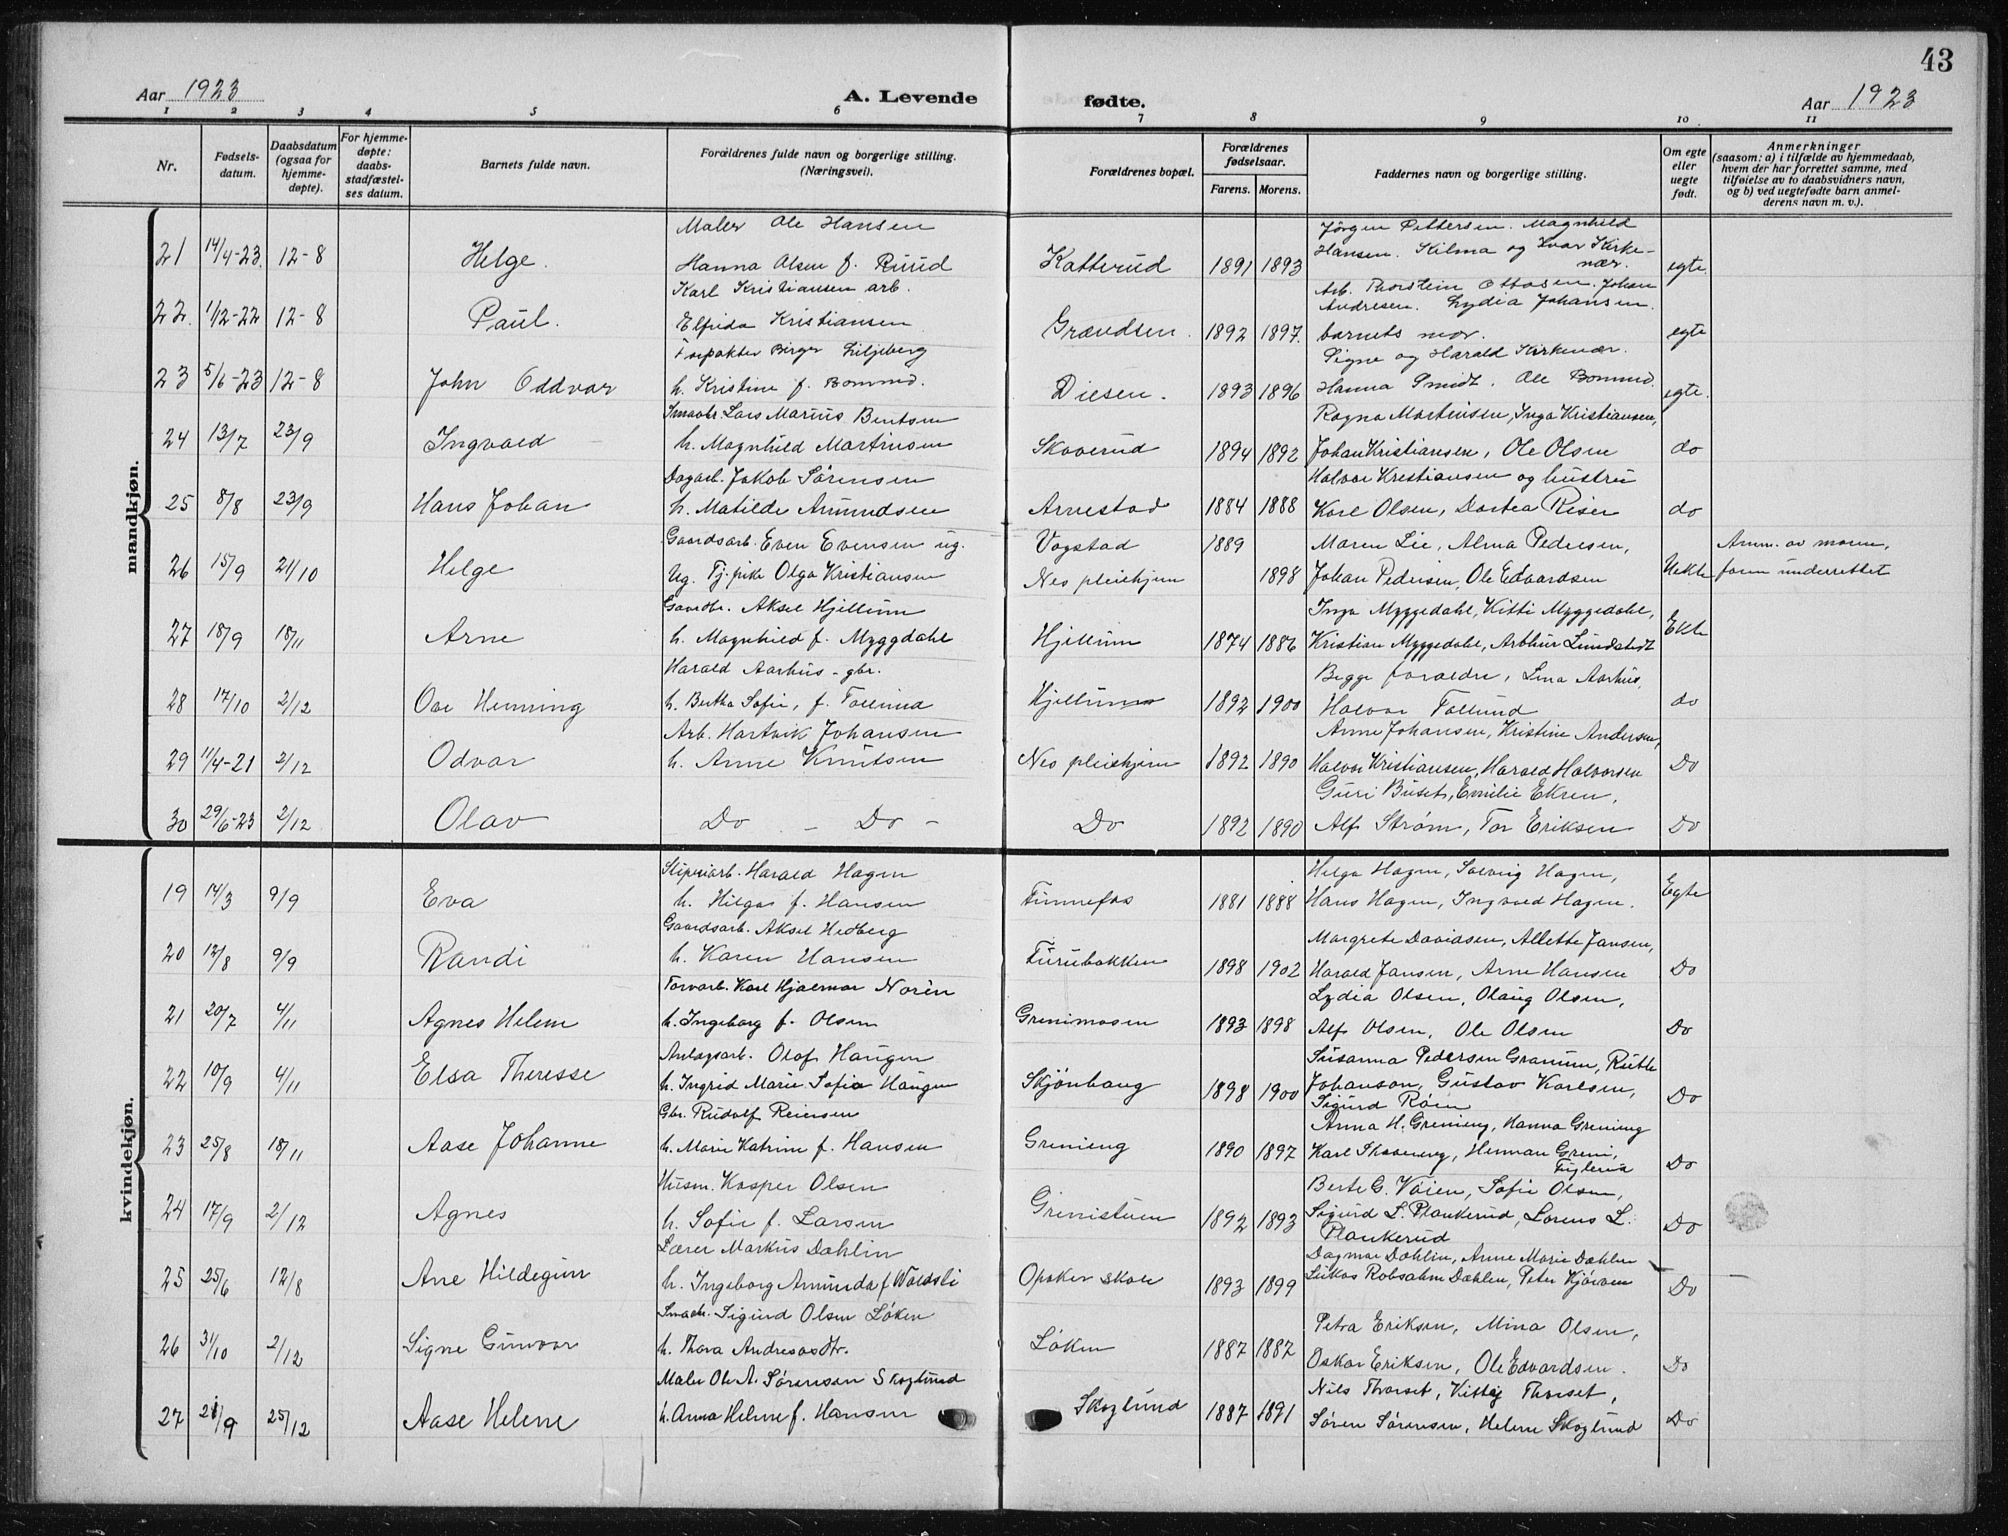 43
Aar 1923
A. Levende
fødte.
Aar 1923
1 2 3 4 5 6 7 8 9 10 11
Nr.
Fødsels-
datum.
Daabsdatum
(ogsaa for
hjemme-
døpte).
For hjemme-
døpte:
daabs-
stadfæstel-
ses datum.
Barnets fulde navn.
Forældrenes fulde navn og borgerlige stilling.
(Næringsvei).
Forældrenes bopæl.
Forældrenes
fødselsaar.
Farens. Morens.
Faddernes navn og borgerlige stilling.
Om egte
eller
uegte
født.
Anmerkninger
(saasom: a) i tilfælde av hjemmedaab,
hvem der har forrettet samme, med
tilføielse av to daabsvidners navn,
og b) ved uegtefødte barn anmel-
derens navn m. v.).
mandkjøn.
Maler Ole Hansen
Jörgen Pettersen. Magnhild
21 14/4-23. 12-8 Helge. Hanna Olsen f. Ruud Katterud 1891 1893 Hansen. Kilma og Ivar Kirke-
nær. egte.
Karl Kristiansen arb.
Arb. Thorstein Ottosen. Johan
Andresen. Lydia Johansen.
22. 1/12-22 12-8 Paul. Elfrida Kristiansen Grændsen. 1892 1897. barnets mor. egte
Forpakter Birger Liljeberg
Signe og Harald Kirkenær.
23 5/6-23 12-8 John Oddvar h. Kristine f. Bommed. Diesen. 1893 1896 Hanna Smidt. Ole Bommed. egte.
Smaabr. Lars Marius Bentsen
Ragna Martinsen, Inga Kristiansen,
24 13/7 23/9 Ingvald h. Magnhild Martinsen Skoverud 1894 1892 Johan Kristiansen, Ole Olsen do
Dagarb. Jakob Sørensen
Halvor Kristiansen og hustru
25 8/8 23/9 Hans Johan h. Matilde Amundsen Arnestad 1884 1888 Karl Olsen, Dortea Riser do
Gaardsarb. Even Evensen ug. Vogstad 1889 Maren Lie, Alma Pedersen, Anm. av moren,
26 15/9 21/10 Helge Ug. Tj.pike Olga Kristiansen Nes pleiehjem 1898 Johan Pedersen, Ole Edvardsen Uekte faren underrettet
Gaardbr. Aksel Hjellum
Inga Myggedahl, Kitti Myggedahl,
27 18/9 18/11 Arne h. Magnhild f. Myggdahl Hjellum 1874 1886 Kristian Myggedahl, Arthur Lundstedt Ekte
Harald Aarhus - gbr.
Begge foraeldre, Lina Aarhus,
28 17/10 2/12 Ove Henning h. Bertha Sofie, f. Tollund Hjellum 1892 1900 Halvor Tollund do
Arb. Hartvik Johansen
Anne Johansen, Kristine Andersen,
29 11/4-21 2/12 Odvar h. Anne Knutsen Nes pleiehjem 1892 1890 Halvor Kristiansen, Harald Halvorsen Do
Guri Buset, Emilie Ekren,
30 29/6-23 2/12 Olav Do - Do - Do 1892 1890 Alf Strøm, Tor Eriksen Do
kvindekjøn.
Sliperiarb. Harald Hagen
Helga Hagen, Solveig Hagen,
19 14/3 9/9 Eva h. Helga f. Hansen Finnefos 1881 1888 Hans Hagen, Ingvald Hagen. Egte
Gaardsarb. Aksel Hedberg
Margrete Davidsen, Allette Jansen,
20 12/8 9/9 Randi h. Karen Hansen Furubakken 1898 1902 Harald Jansen, Arne Hansen Do
Torvarb. Karl Hjalmar Norèn
Lydia Olsen, Olaug Olsen,
21 20/7 4/11 Agnes Helene h. Ingeborg f. Olsen Grenimosen 1893 1898 Alf Olsen, Ole Olsen Do
Anlægsarb. Olof Haugen
Susanna Pedersen Granum, Ruth
22 10/9 4/11 Elsa Theresse h. Ingrid Marie Sofia Haugen Skjønhaug 1898 1900 Johanson, Gustav Karlsen,
Sigurd Röin Do
Gbr. Rudolf Reiersen
Anna H. Grenieng, Hanna Grenieng
23 25/8 18/11 Aase Johanne h. Marie Katrine f. Hansen Grenieng 1890 1897 Karl Skoveng, Herman Greni,
Fuglevia Do
Husm. Kasper Olsen
Berte G. Vaien, Sofie Olsen,
24 17/9 2/12 Agnes h. Sofie f. Larsen Grenistuen 1892 1893 Sigurd L. Plankerud, Lorens L.
Plankerud Do
Lærer Markus Dæhlin
Dagmar Dæhlin, Anne Marie Dæhlen
25 25/6 12/8 Ane Hildegunn h. Ingeborg Amunda f. Voldsli Opaker skole 1893 1899 Lukas Robsahm Dæhlen, Peter Kjörven Do
Smaabr. Sigurd Olsen Löken
Petra Eriksen, Mina Olsen,
26 31/10 2/12 Signe Gunvor h. Thora Andreasdtr. Løken 1887 1882 Oskar Eriksen, Ole Edvardsen. Do
Maler Ole A. Sørensen Skoglund
Nils Thorset, Kittij Thorset,
27 21/9 25/12 Aase Helene h. Anna Helene f. Hansen Skoglund 1887 1891 Søren Sørensen, Helene Skoglund Do